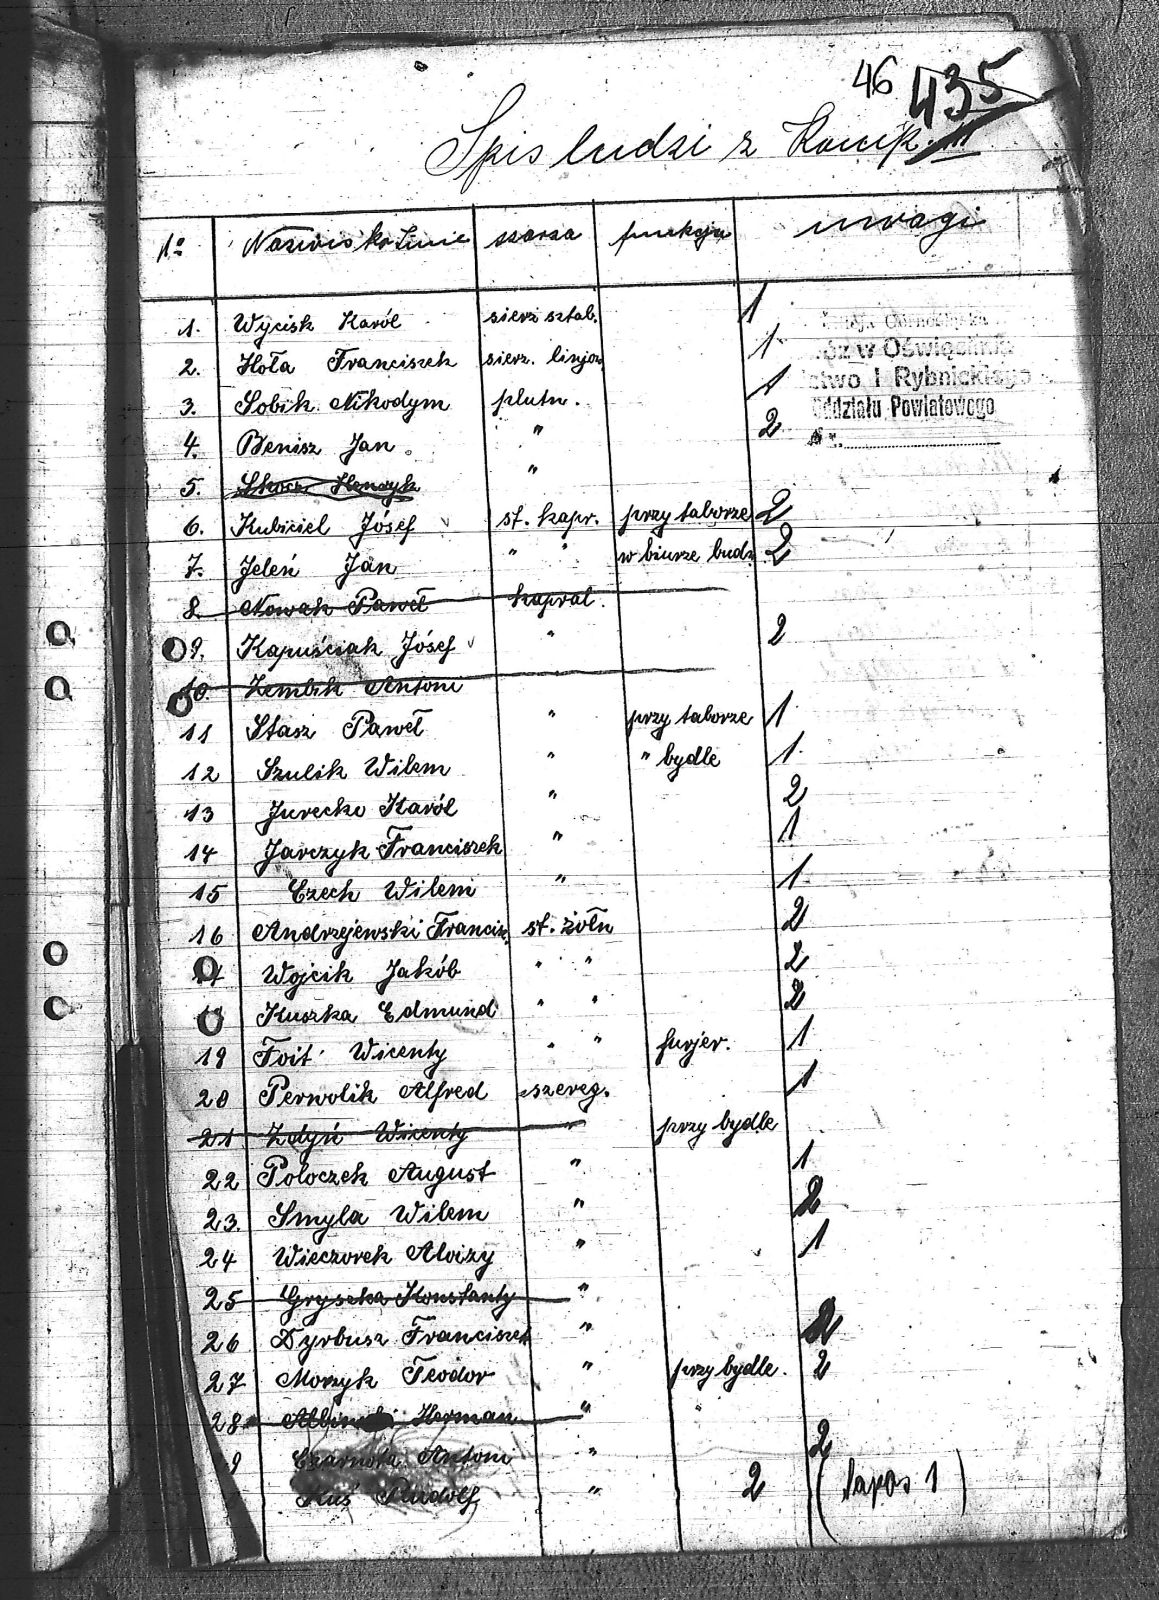 46 435
Spis ludzi z
No Nazwisko Imie szarża funkcja uwagi
1. Wycisk Karól sierż sztab. 1
2. Hoła Franciszek sierż. linjow. 1
3. Sobik Nikodym plutn. 1
4. Benisz Jan " 2
5. Henryk "
6. Kubiciel Jósef st. kapr. przy taborze 2
7. Jeleń Jan " " w biurze budż. 2
8. Nowak Paweł kapral.
9. Kapuściak Jósef " 2
10. Zembik Antoni
11 Stasz Paweł " przy taborze 1
12 Szulik Wilem " " bydle 1.
13 Jurecko Karól " 2
14 Jarczyk Franciszek " 1
15 Czech Wilem " 1
16 Andrzejewski Francisz. st. żołn 2
17 Wojcik Jakób " " 2
18 Kuszka Edmund " " 2
19 Foit Wicenty " " furjer. 1
20 Perwolik Alfred szereg. 1
21 Zdyń Wicenty " przy bydle
22 Poloczek August " 1
23. Smyla Wilem " 2
24 Wieczorek Aloizy " 1
25 Konstanty "
26 Dyrbusz Franciszek " 2
27 Morzyk Teodor " przy bydle. 2
28 Herman "
9 Czarnota Antoni " 2
Kuś Rudolf " 2 (Lapos 1)
w Oświęcimiu
I Rybnickiego
Oddziału Powiatowego